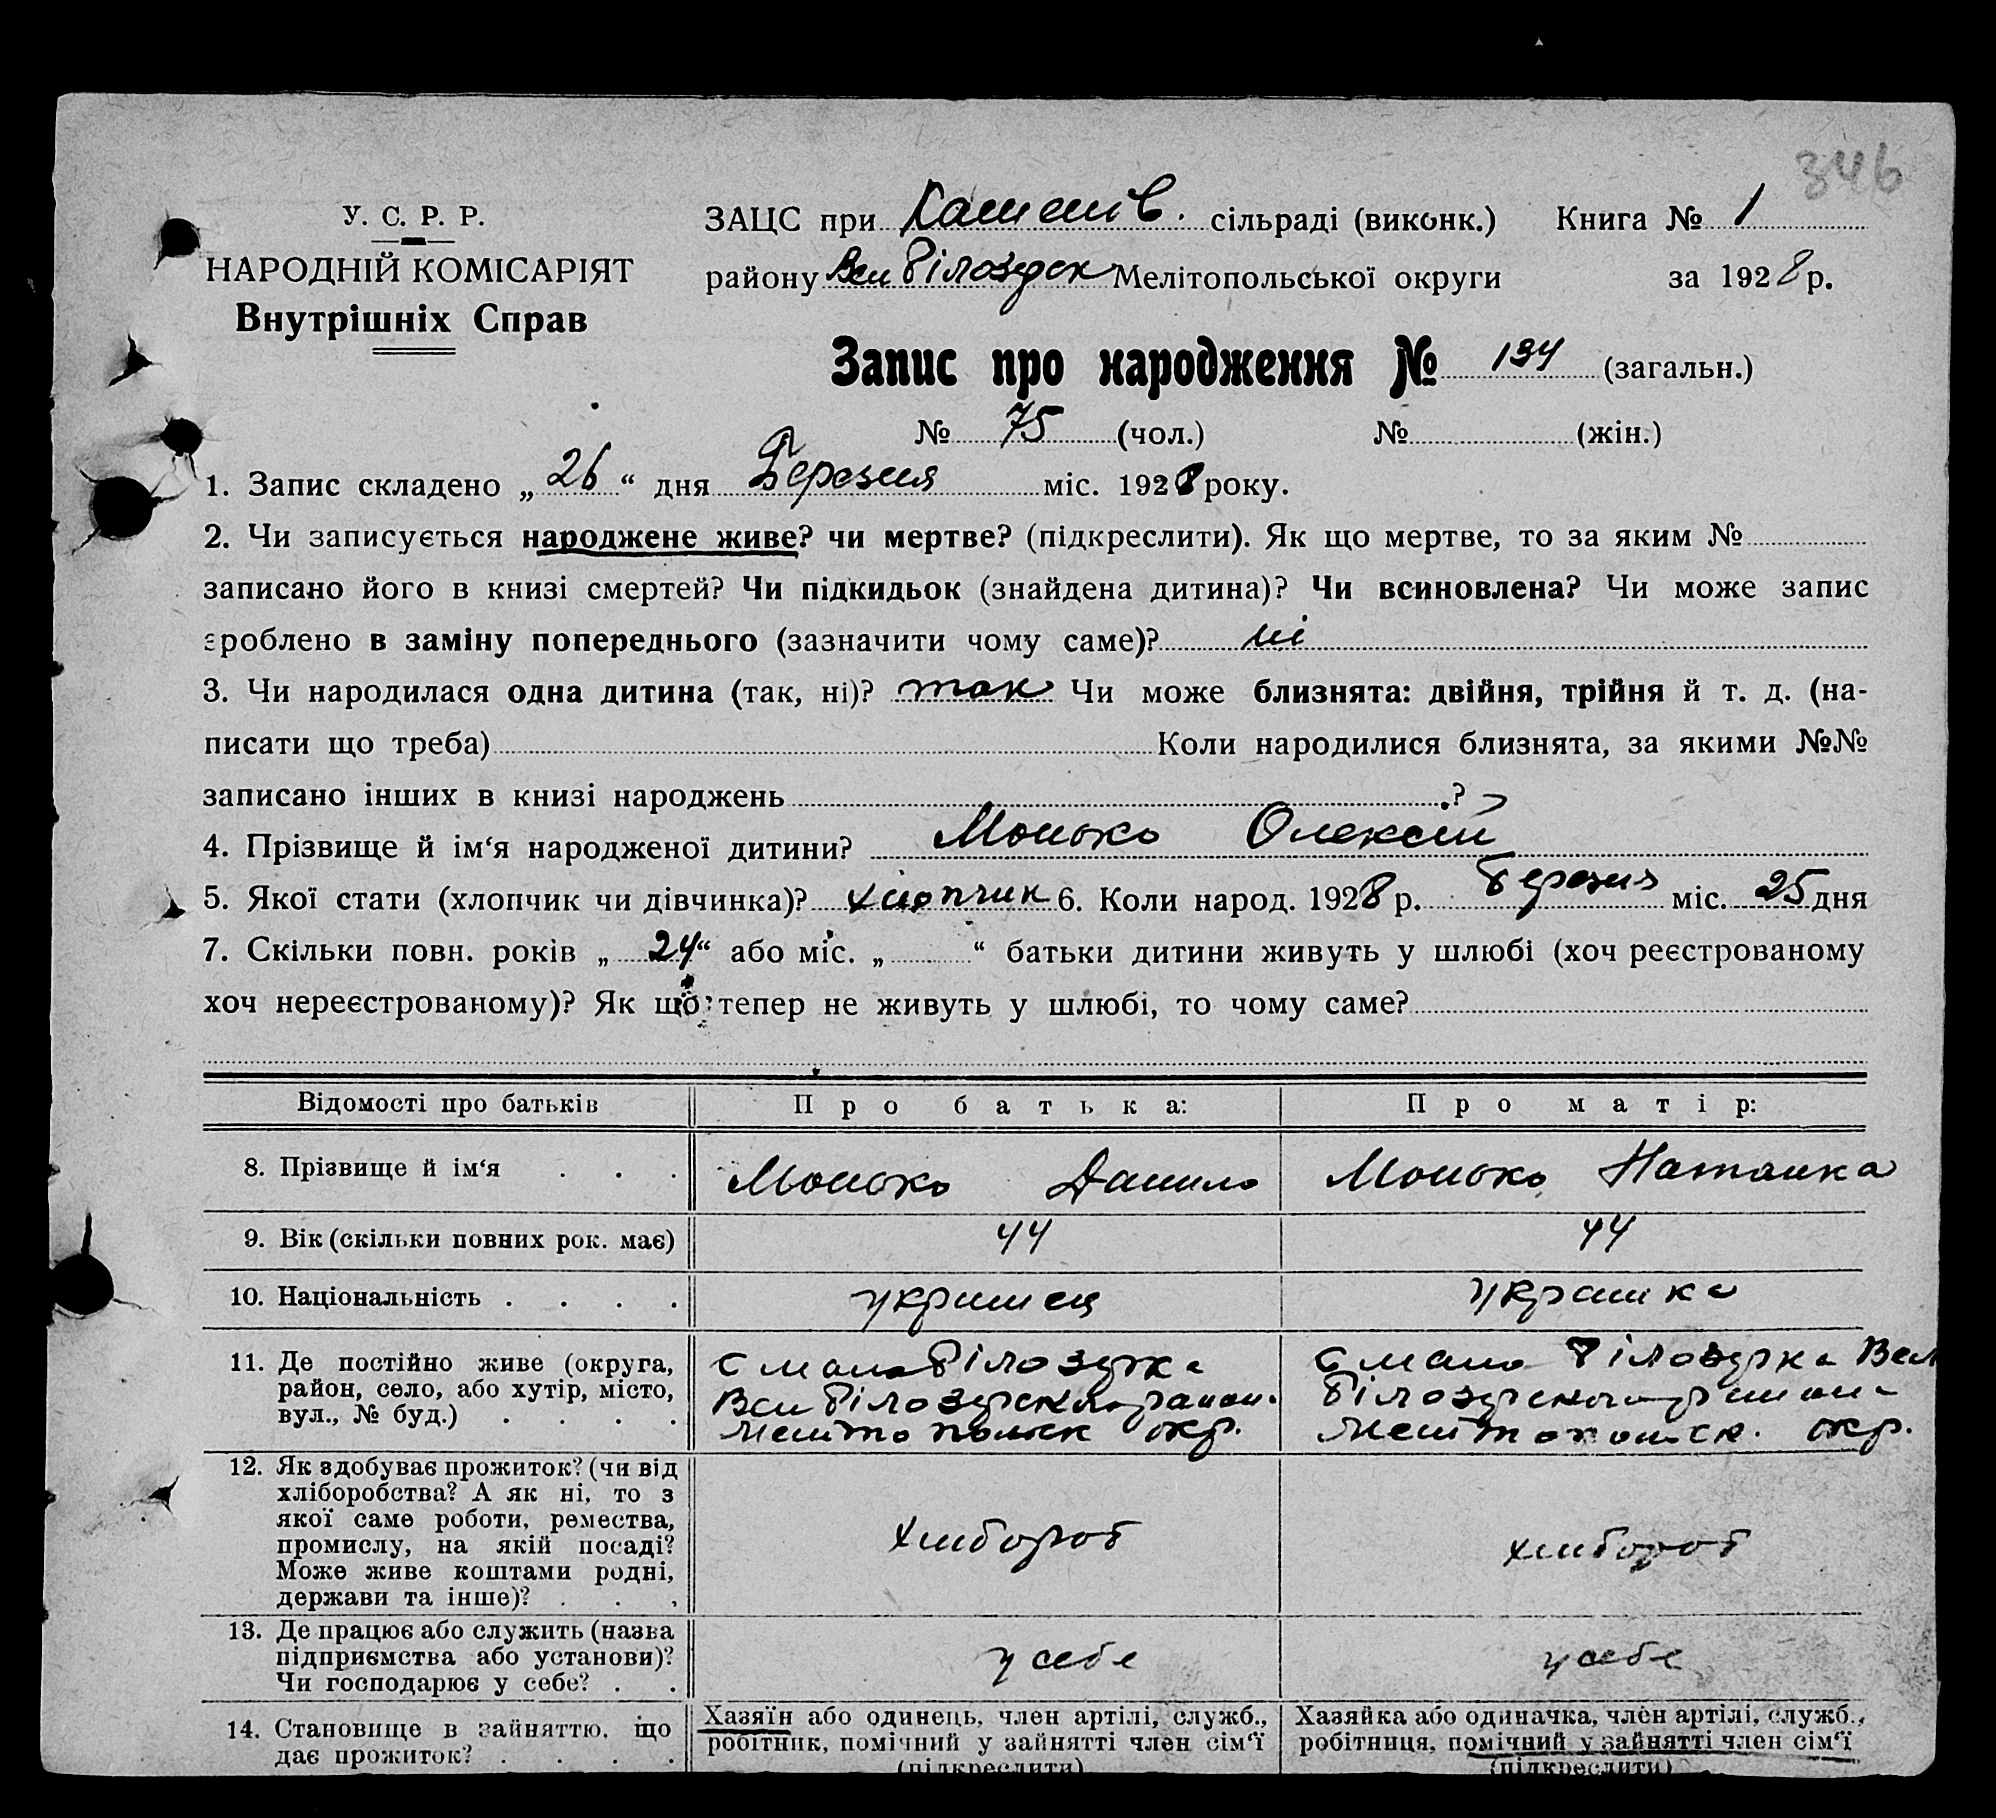 346
У. С. Р. Р.
НАРОДНІЙ КОМІСАРІЯТ
Внутрішніх Справ
ЗАЦС при сільраді (виконк.) Книга № 1
району Вел Білозерск Мелітопольської округи за 1928 р.
Запис про народження № 134 (загальн.)
№ 75 (чол.) № (жін.)
1. Запис складено „ 26 “ дня Березня міс. 1928 року.
2. Чи записується народжене живе? чи мертве? (підкреслити). Як що мертве, то за яким №
записано його в книзі смертей? Чи підкидьок (знайдена дитина)? Чи всиновлена? Чи може запис
зроблено в заміну попереднього (зазначити чому саме)? ні
3. Чи народилася одна дитина (так, ні)? так Чи може близнята: двійня, трійня й т. д. (на-
писати що треба) Коли народилися близнята, за якими №№
записано інших в книзі народжень ?
4. Прізвище й ім‘я народженої дитини? Монько Олексій
5. Якої стати (хлопчик чи дівчинка)? хлопчик 6. Коли народ. 1928 р. Березня міс. 25 дня
7. Скільки повн. років „ 24 “ або міс. „ “ батьки дитини живуть у шлюбі (хоч реєстрованому
хоч нереєстрованому)? Як що тепер не живуть у шлюбі, то чому саме?
Відомості про батьків Про батька: Про матір:
8. Прізвище й ім‘я . . . Монько Данило Монько Наталка
9. Вік (скільки повних рок. має) 44 44
10. Національність . . . . украинец украинка
11. Де постійно живе (округа,
район, село, або хутір, місто,
вул., № буд.) . . . .
с мала Білозерка
Вел Білозерского район.
Мелітопольск окр.
с мала Білозерка Вел
Білозерского району
Мелітопольск. окр.
12. Як здобуває прожиток? (чи від
хліборобства? А як ні, то з
якої саме роботи, ремества,
промислу, на якій посаді?
Може живе коштами родні,
держави та інше)? . . .
хлибороб
хлибороб
13. Де працює або служить (назва
підприємства або установи)?
Чи господарює у себе? . .
у себе
у себе
14. Становище в зайняттю, що
дає прожиток? . . . .
Хазяїн або одинець, член артілі, служб.,
робітник, помічний у зайнятті член сім‘ї
(підкреслити)
Хазяйка або одиначка, член артілі, служб.,
робітниця, помічний у зайнятті член сім‘ї
(підкреслити)